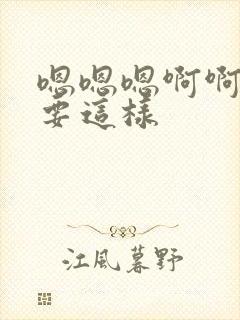 嗯嗯嗯啊啊
要這樣
江風暮野